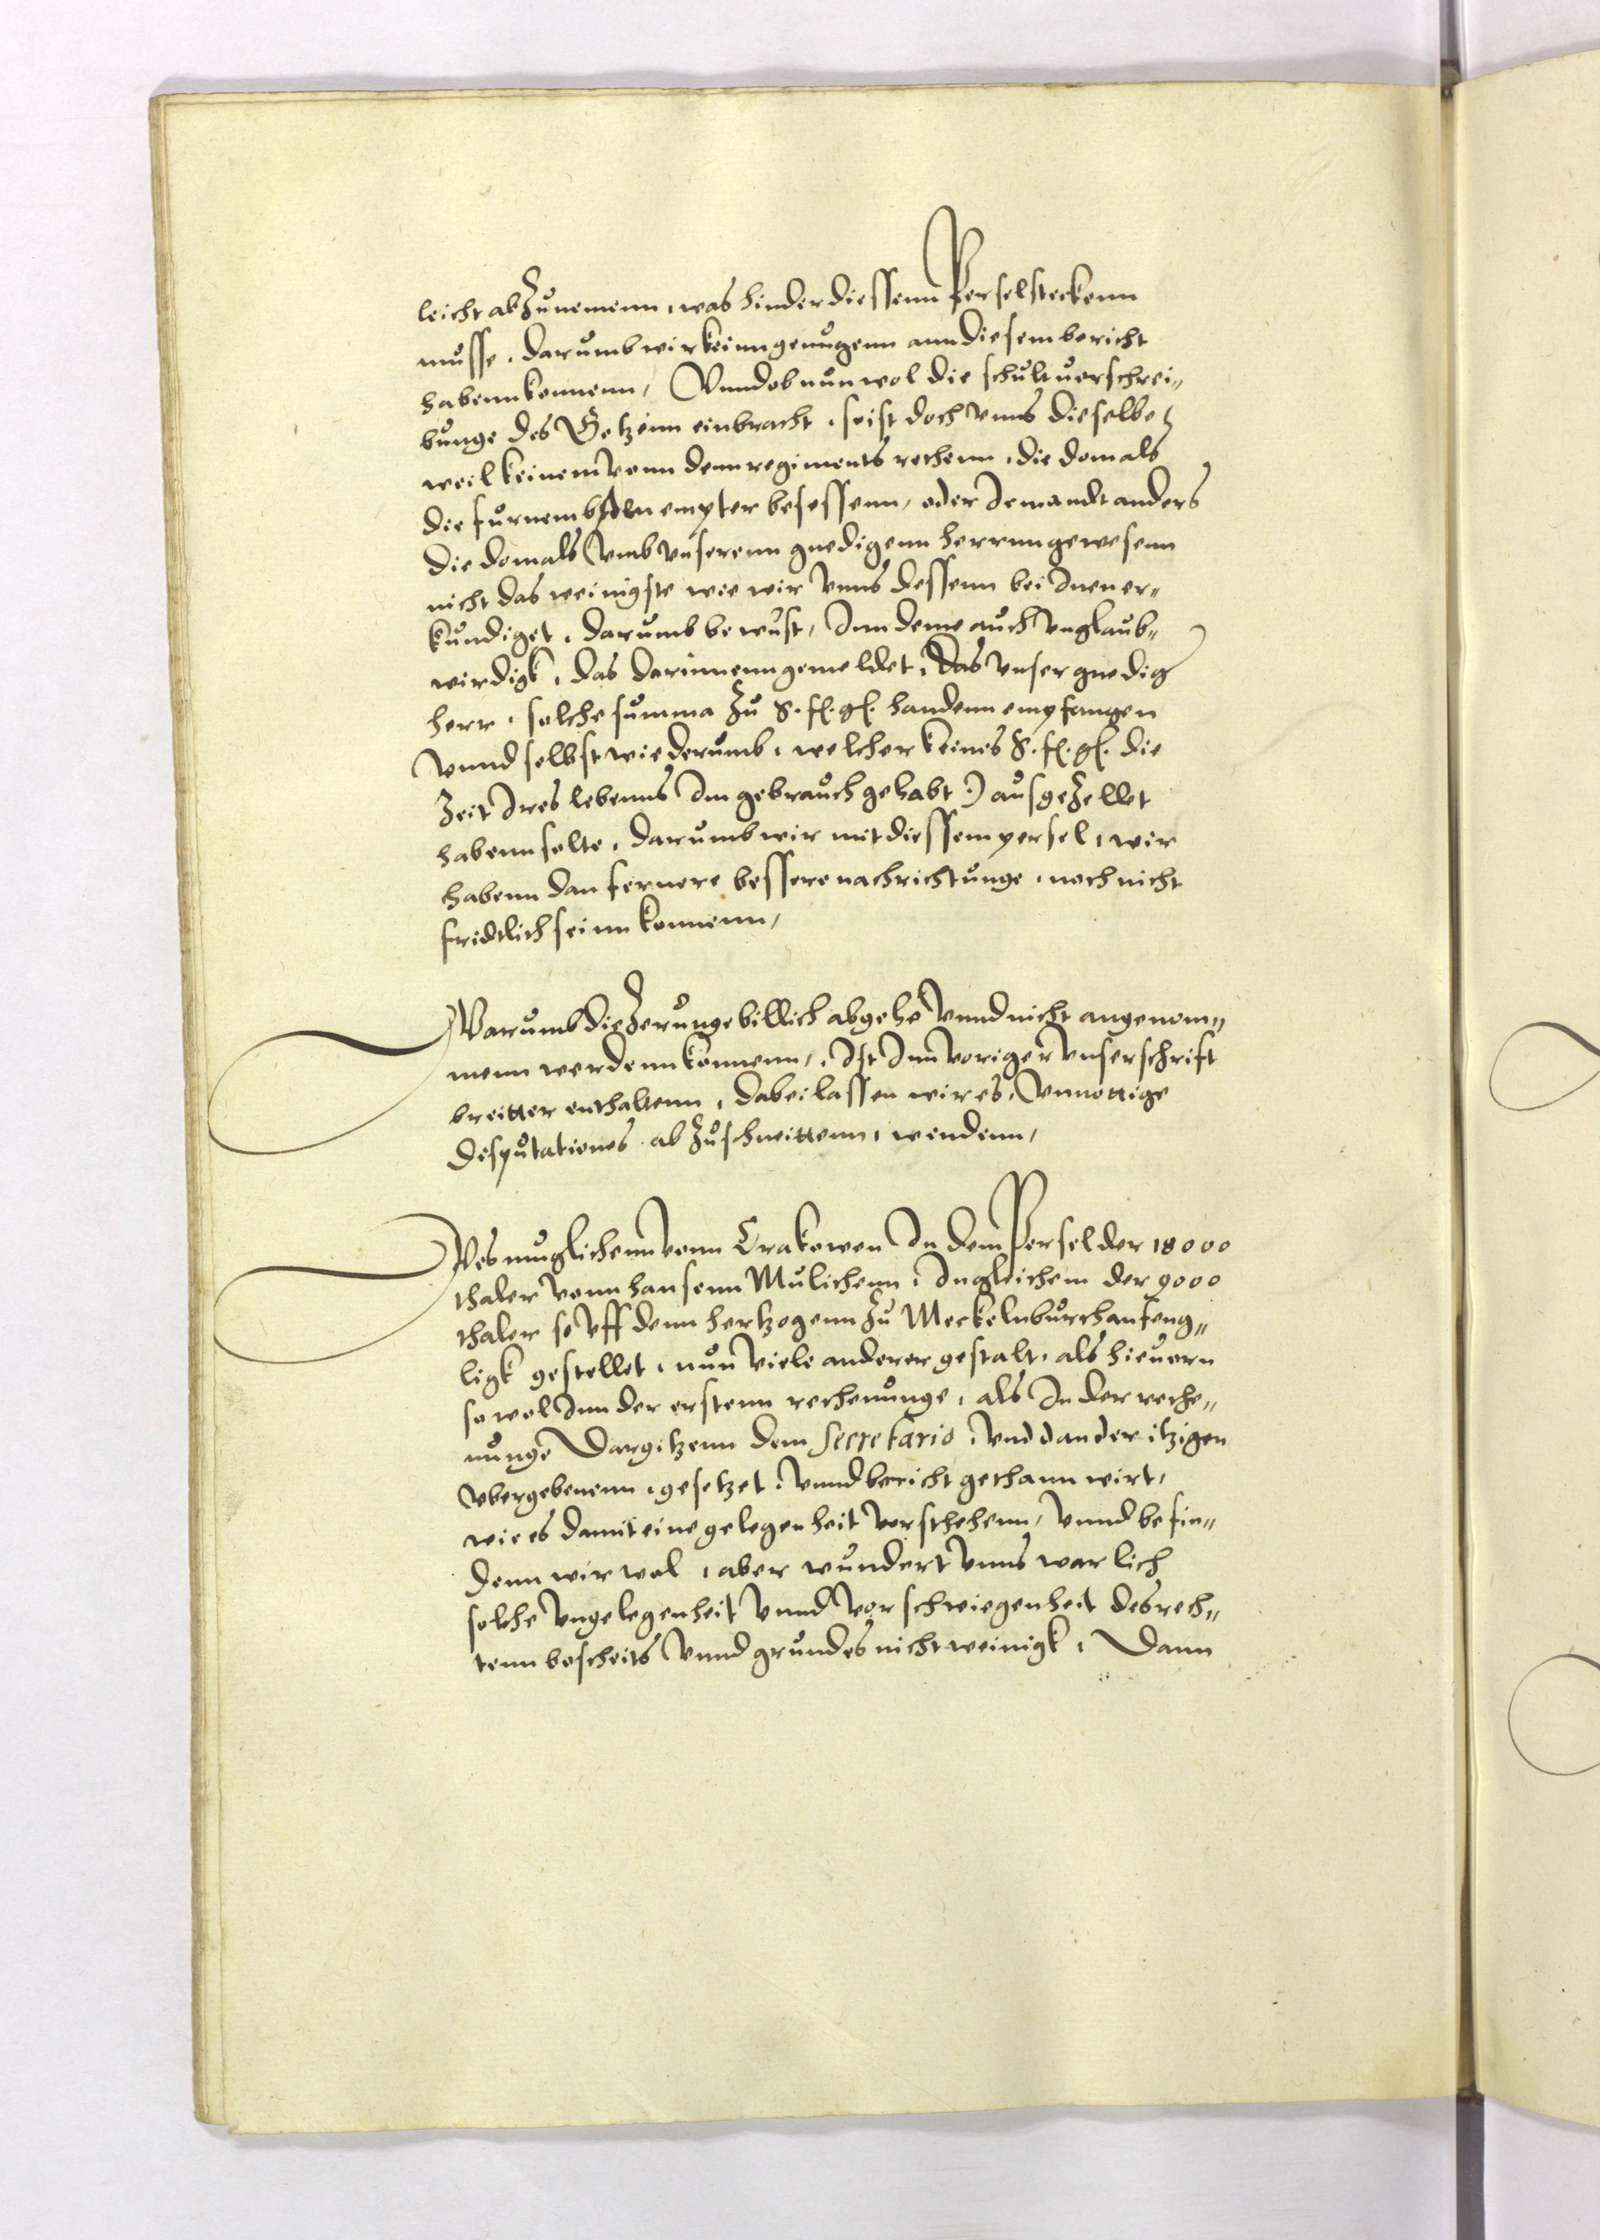 leicht abZunemenn, was hinder diessenn Persel steckenn
musse, darumb wir kein ngenugenn ann diesem bericht
habenn konnenn, Vnnd ob nun wol die schultverschrei„
bunge des Getzenn einbracht, so ist doch vnns dieselbe
weil keinem vonn denn regiments rethenn, die domals
die furnembsten empter besessenn, oder Jemandt anders
die domals vmb vnserenn gnedigenn herrnn gewesenn
nicht das weinigste wie wir vnns dessenn bei Jnen er„
kundiget, darumb bewust, Jnn deme auch vnglaub„
wirdigk, das darinnenn gemeldet, das vnser gnedig
herr, solche summa Zu S. f. g. handenn empfangen
vnnd selbst wiederumb, welcher keines S. f. g. die
Zeit Jres lebenns Jm gebrauch gehabt :) ausgeZellet
habenn solte, darumb wir mit diessem persel, wir
habenn dan fernere bessere nachrichtunge, noch nicht
fridtlich seinn konnenn,
Warumb die Zerunge billich abgehe vnnd nicht angenom„
menn werdenn konnenn, Jst Jnn voriger vnser schrift
breitter enthaltenn, dabei lassen wir es, vnnottige
desputationes abZuschneittenn, wendenn,
Des muglichenn vonn Crakowen Jn dem Persel der 18000
thaler vonn hansenn Mulichenn, Jngleichem der 9000
thaler so vff denn hertzogenn Zu Meckelnburch anfeng„
ligk gestellet, nun viele anderer gestalt, als hieuern
so wol Jnn der erstenn rechenunge, als Jn der reche„
nunge Dargitzenn dem Secretario, vnd dan der itzigen
vbergebenenn, gesetzet, vnnd bericht gethann wirt,
wie es damit eine gelegenheit
 vnnd befin„
denn wir wol, aber wundert vnns warlich
solche vngelegenheit vnnd vorschwiegenheit des rech„
tenn bescheits vnnd grundes nicht weinigk, Dann